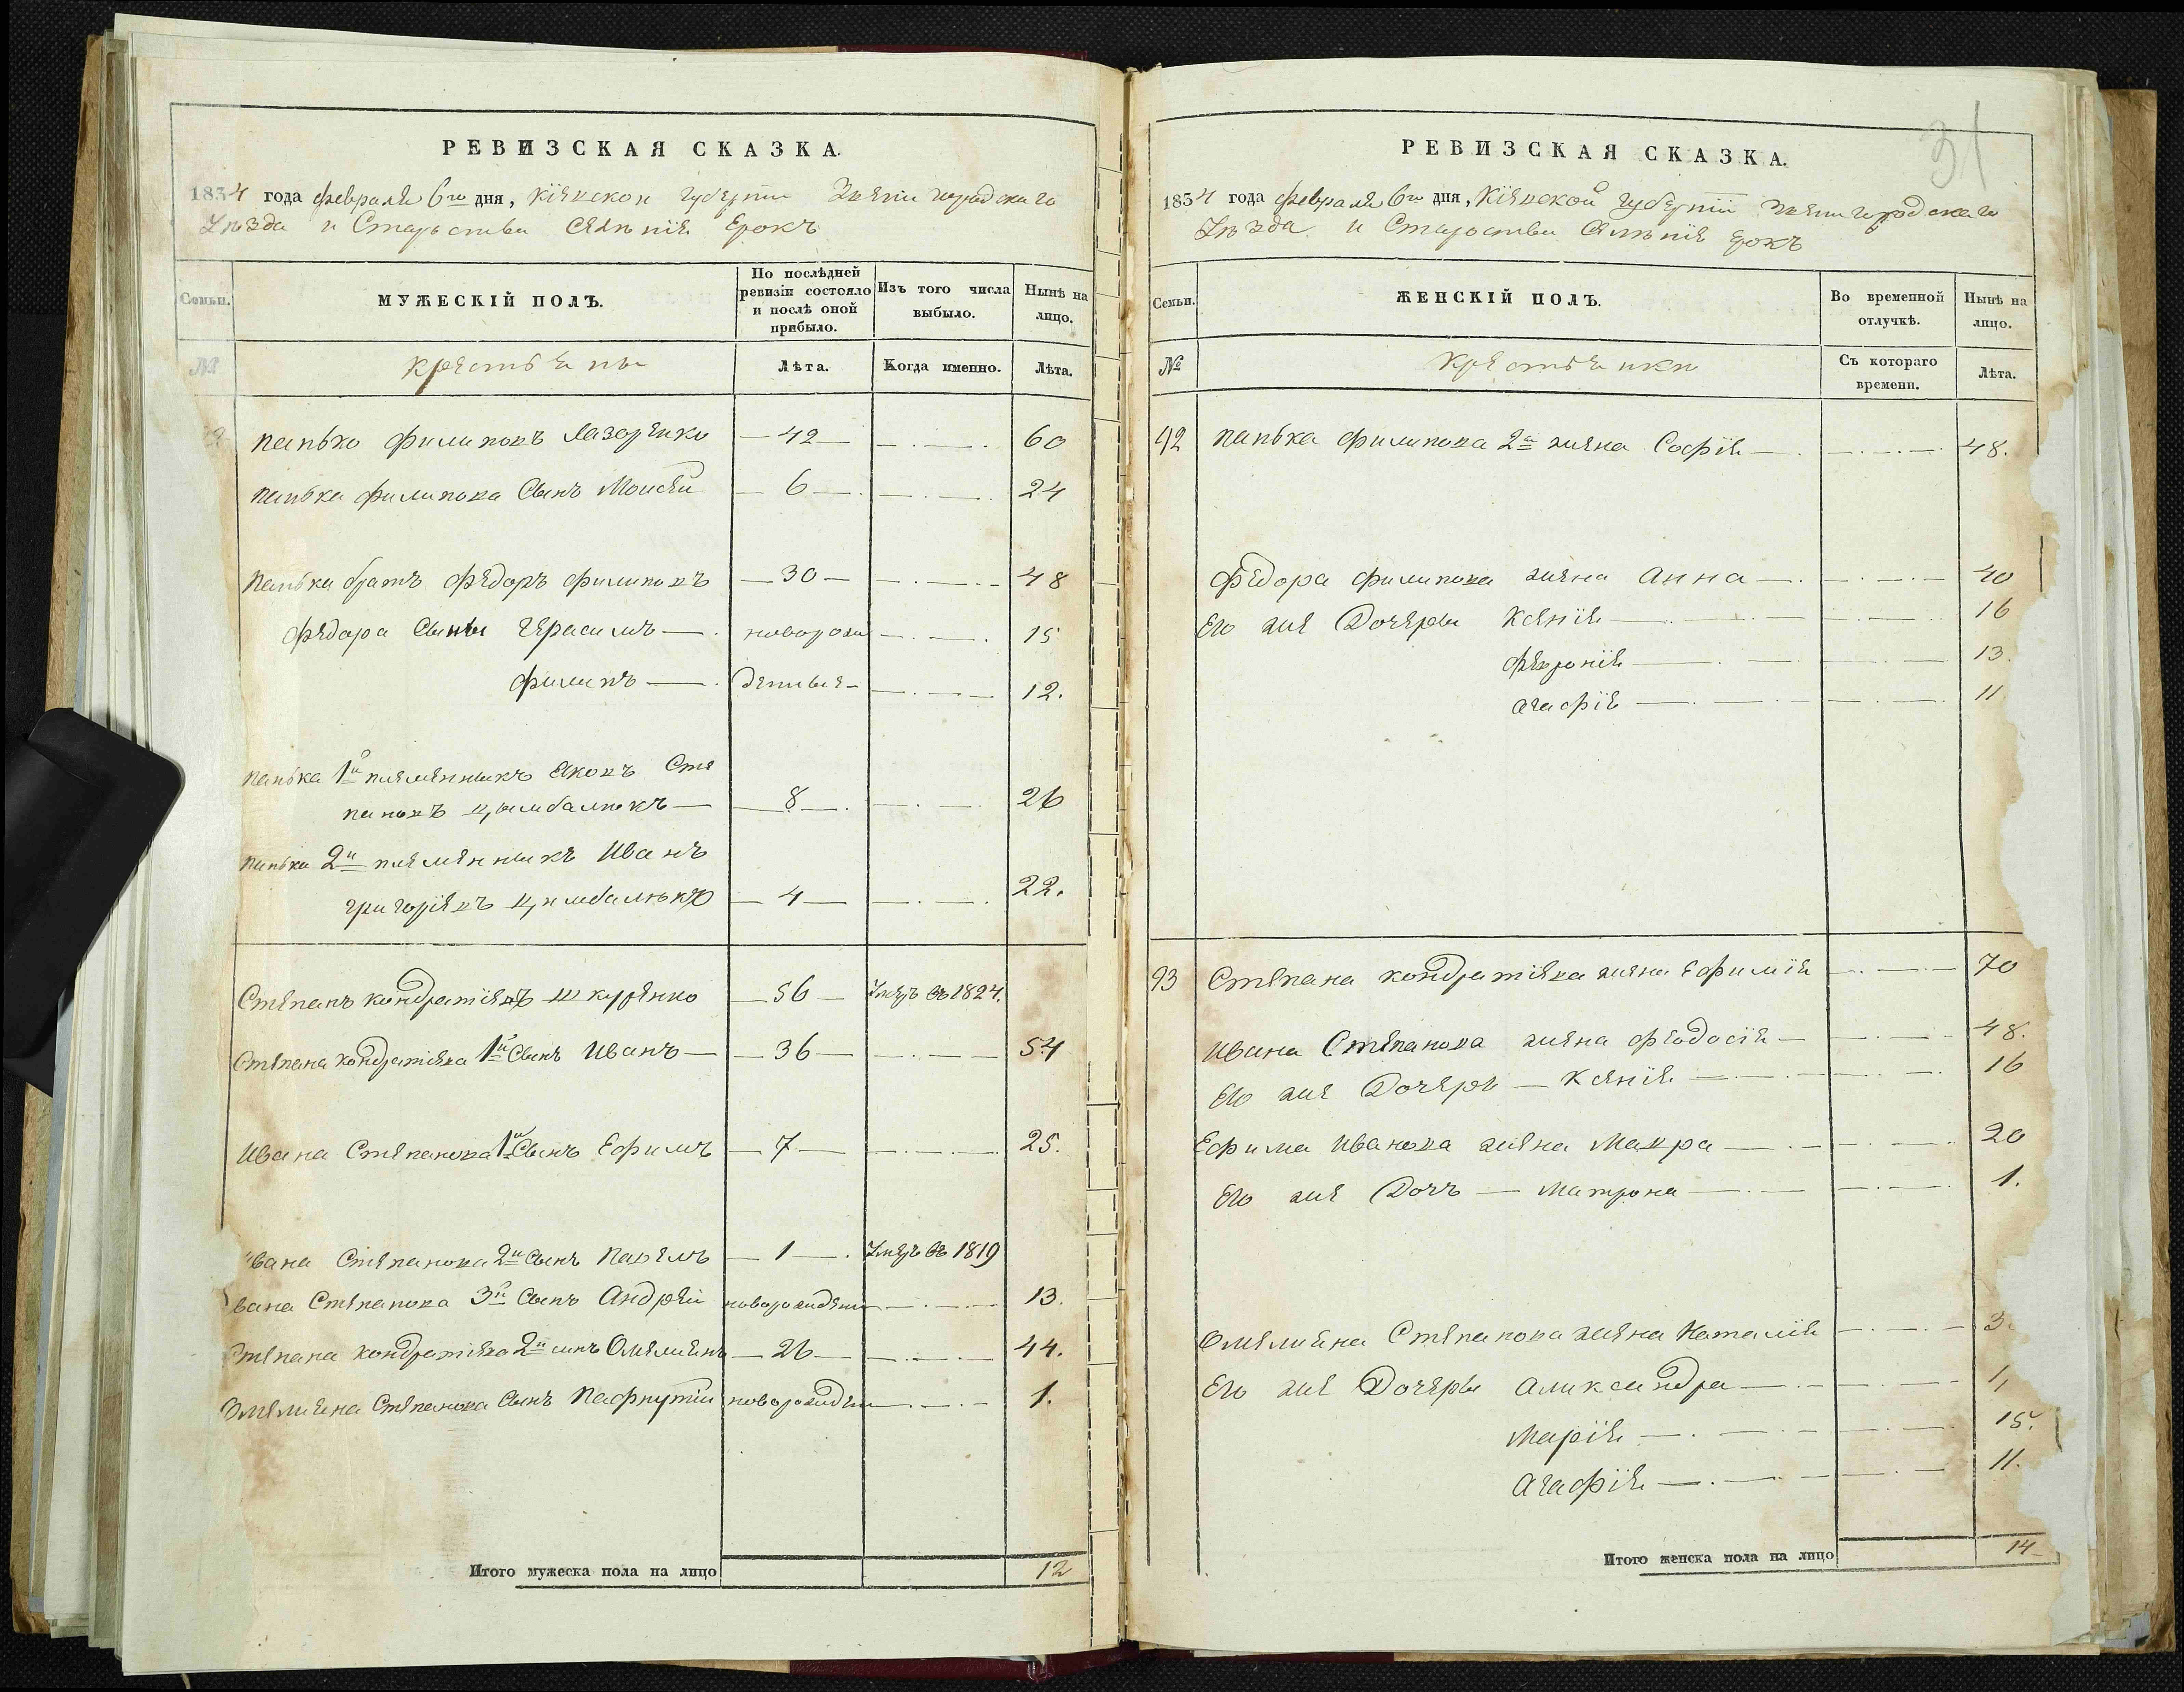 РЕВИЗСКАЯ СКАЗКА.
1834 года февраля 6го дня, Кіевской губерніи Звенигородскаго
Уѣзда и Староства Селенія Ерокъ
Семьи.
МУЖЕСКІЙ ПОЛЪ.
По послѣдней ревизіи состояло и послѣ оной прибыло.
Изъ того числа выбыло.
Нынѣ на лицо.
№
Крестьяне
Лѣта.
Когда именно.
Лѣта.
Панько Филиповъ Лазоренко — 42 — — . — . 60
Панька Филипова Сынъ Моисей — 6 — — . — . 24
Панька братъ Федоръ Филиповъ — 30 — — . — . — 48
Федора Сыны Герасимъ — . новорож — . — . 15
Филипъ — . денные — — . — . — 12.
Панька 1й племянникъ Яковъ Сте
пановъ Цымбалюкъ — 8 — . — . — . 26
Панька 2й племянникъ Иванъ
Григоріевъ Цимбалюкъ — 4 — — . — . 22.
Степанъ Кондратіевъ Шкуренко — 56 — Умеръ въ 1824.
Степана Кондратіева 1й Сынъ Иванъ — — 36 — — . — . — 54
Ивана Степанова 1й Сынъ Ефимъ — 7 — — . — . — 25.
вана Степанова 2й Сынъ Павелъ — 1 — . Умеръ въ 1819
вана Степанова 3й Сынъ Андрей новорожден — . — . — 13.
Степана Кондратіева 2й сынъ Омелиянъ — 26 — — . — . — 44.
Омелияна Степанова Сынъ Пафнутій новорожден — . — . — 1.
Итого мужеска пола на лицо 12
31
РЕВИЗСКАЯ СКАЗКА.
1834 года февраля 6го дня, Кіевской губерніи Звенигородскаго
Уѣзда и Староства Селенія Ерокъ
Семьи.
ЖЕНСКІЙ ПОЛЪ.
Во временной отлучкѣ.
Нынѣ на лицо.
№
Крестьянки
Съ котораго времени.
Лѣта.
92 Панька Филипова 2я жена Софія — . — . — . — . 48.
Федора Филипова жена Анна — . — . — . — 40
Его же Дочери Ксенія — . — . — 16
Февронія — . — . — 13.
Агафія — . — . — 11
93 Степана Кондратіева жена Ефимія — . — . — 70
Ивана Степанова жена Феодосія — — . — . — 48.
Его же Дочерь — Ксенія — . — . — 16
Ефима Иванова жена Мавра — . — . — 20
Его же Дочъ — Матрона — . — . — 1.
Омелияна Степанова жена Наталія — . — . — 3
Его же Дочери Александра — . — . — 1
Марія — . — . — 15.
Агафія — . — . — 11.
Итого женска пола на лицо 14